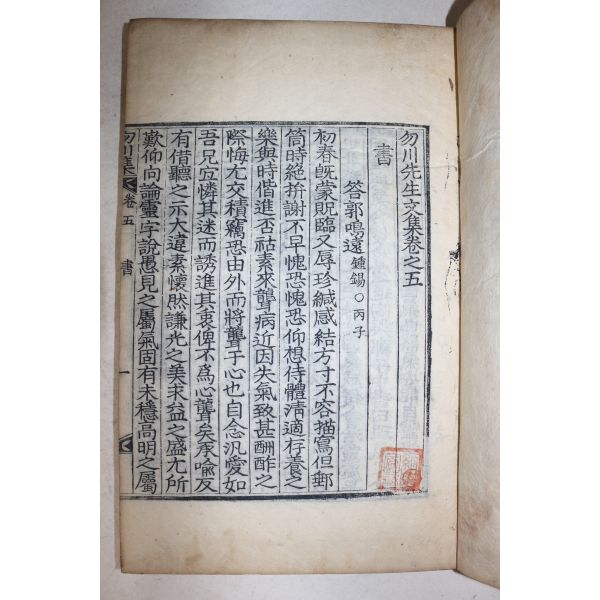 勿川先生文集卷之五
書
答郭鳴遠鍾錫○丙子
初春旣蒙貺臨又辱珍緘感結方寸不容描寫但郵
筒時絶拚謝不早愧恐愧恐仰想侍體淸適存養之
樂與時偕進否祜素來聾病近因失氣致甚酬酢之
際悔尤交積竊恐由外而將聾于心也自念汎愛如
吾兄宜憐其迷而誘進其衷俾不爲心聾矣承喩反
有借聽之示大違素懷然謙光之美求益之盛尤所
歎仰向論靈字說愚見之屬氣固有未穩高明之屬
勿川集 卷五 書 一